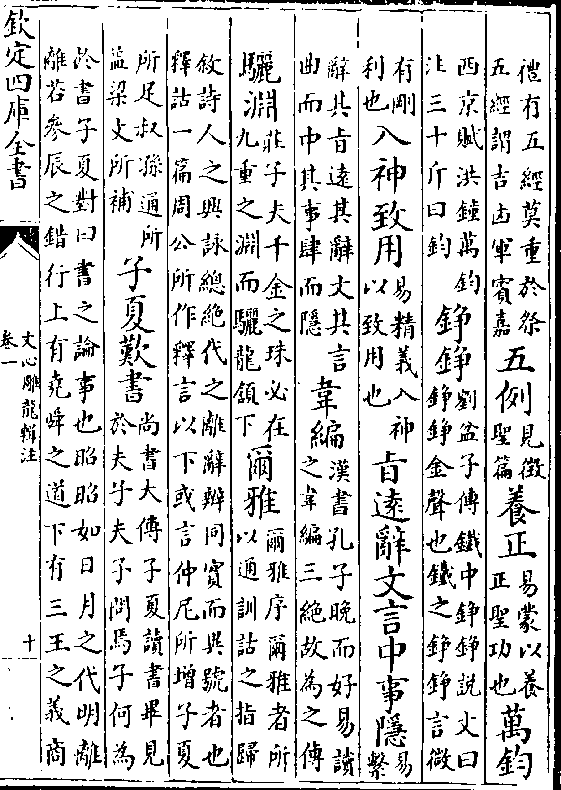 禮有五經莫重於祭五經謂吉凶軍賓嘉五例見徵聖篇養正易蒙以養正聖功也萬鈞
西京賦洪鐘萬鈞註三十斤曰鈞錚錚劉盆子傳鐵中錚錚說文曰錚錚金聲也鐵之錚錚言微
有剛利也入神致用易精義入神以致用也旨遠辭文言中事隱易繫
辭其旨遠其辭文其言曲而中其事肆而隱韋編漢書孔子晚而好易讀之韋編三絕故為之傳
驪淵莊子夫千金之珠必在九重之淵而驪龍頷下爾雅爾雅序爾雅者所以通訓詁之指歸
敘詩人之興詠總絕代之離辭辨同實而異號者也釋詁一篇周公所作釋言以下或言仲尼所增子夏
所足叔孫通所益梁文所補子夏歎書尚書大傳子夏讀書畢見於夫子夫子問焉子何為
於書子夏對曰書之論事也昭昭如日月之代明離離若參辰之錯行上有堯舜之道下有三王之義商
欽定四庫全書
文心雕龍輯注
卷一
十